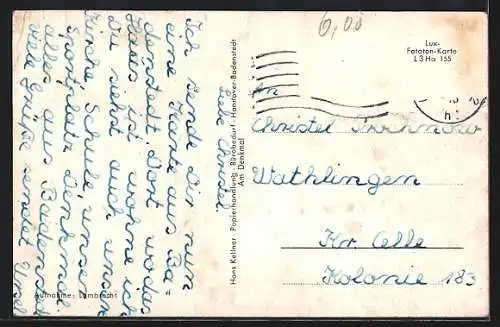 Liebe Christel,
Ich sende Dir nun
eine Karte aus Ba=
denstedt. Dort wo das
ist wohne ich
Du siehst auch unsere
Kirche, Schule, unseren
Sportplatz, Denkmal
alles aus Badenstedt
viele Grüße sendet Ursel
Aufnahme: Lambrecht
Hans Kellner Papierhandlung - Bürobedarf - Hannover-Badenstedt
Am Denkmal
6,00
Lux-
Fototon-Karte
L 3 Ha 155
An
Christel
Wathlingen
Kr. Celle
Kolonie 183